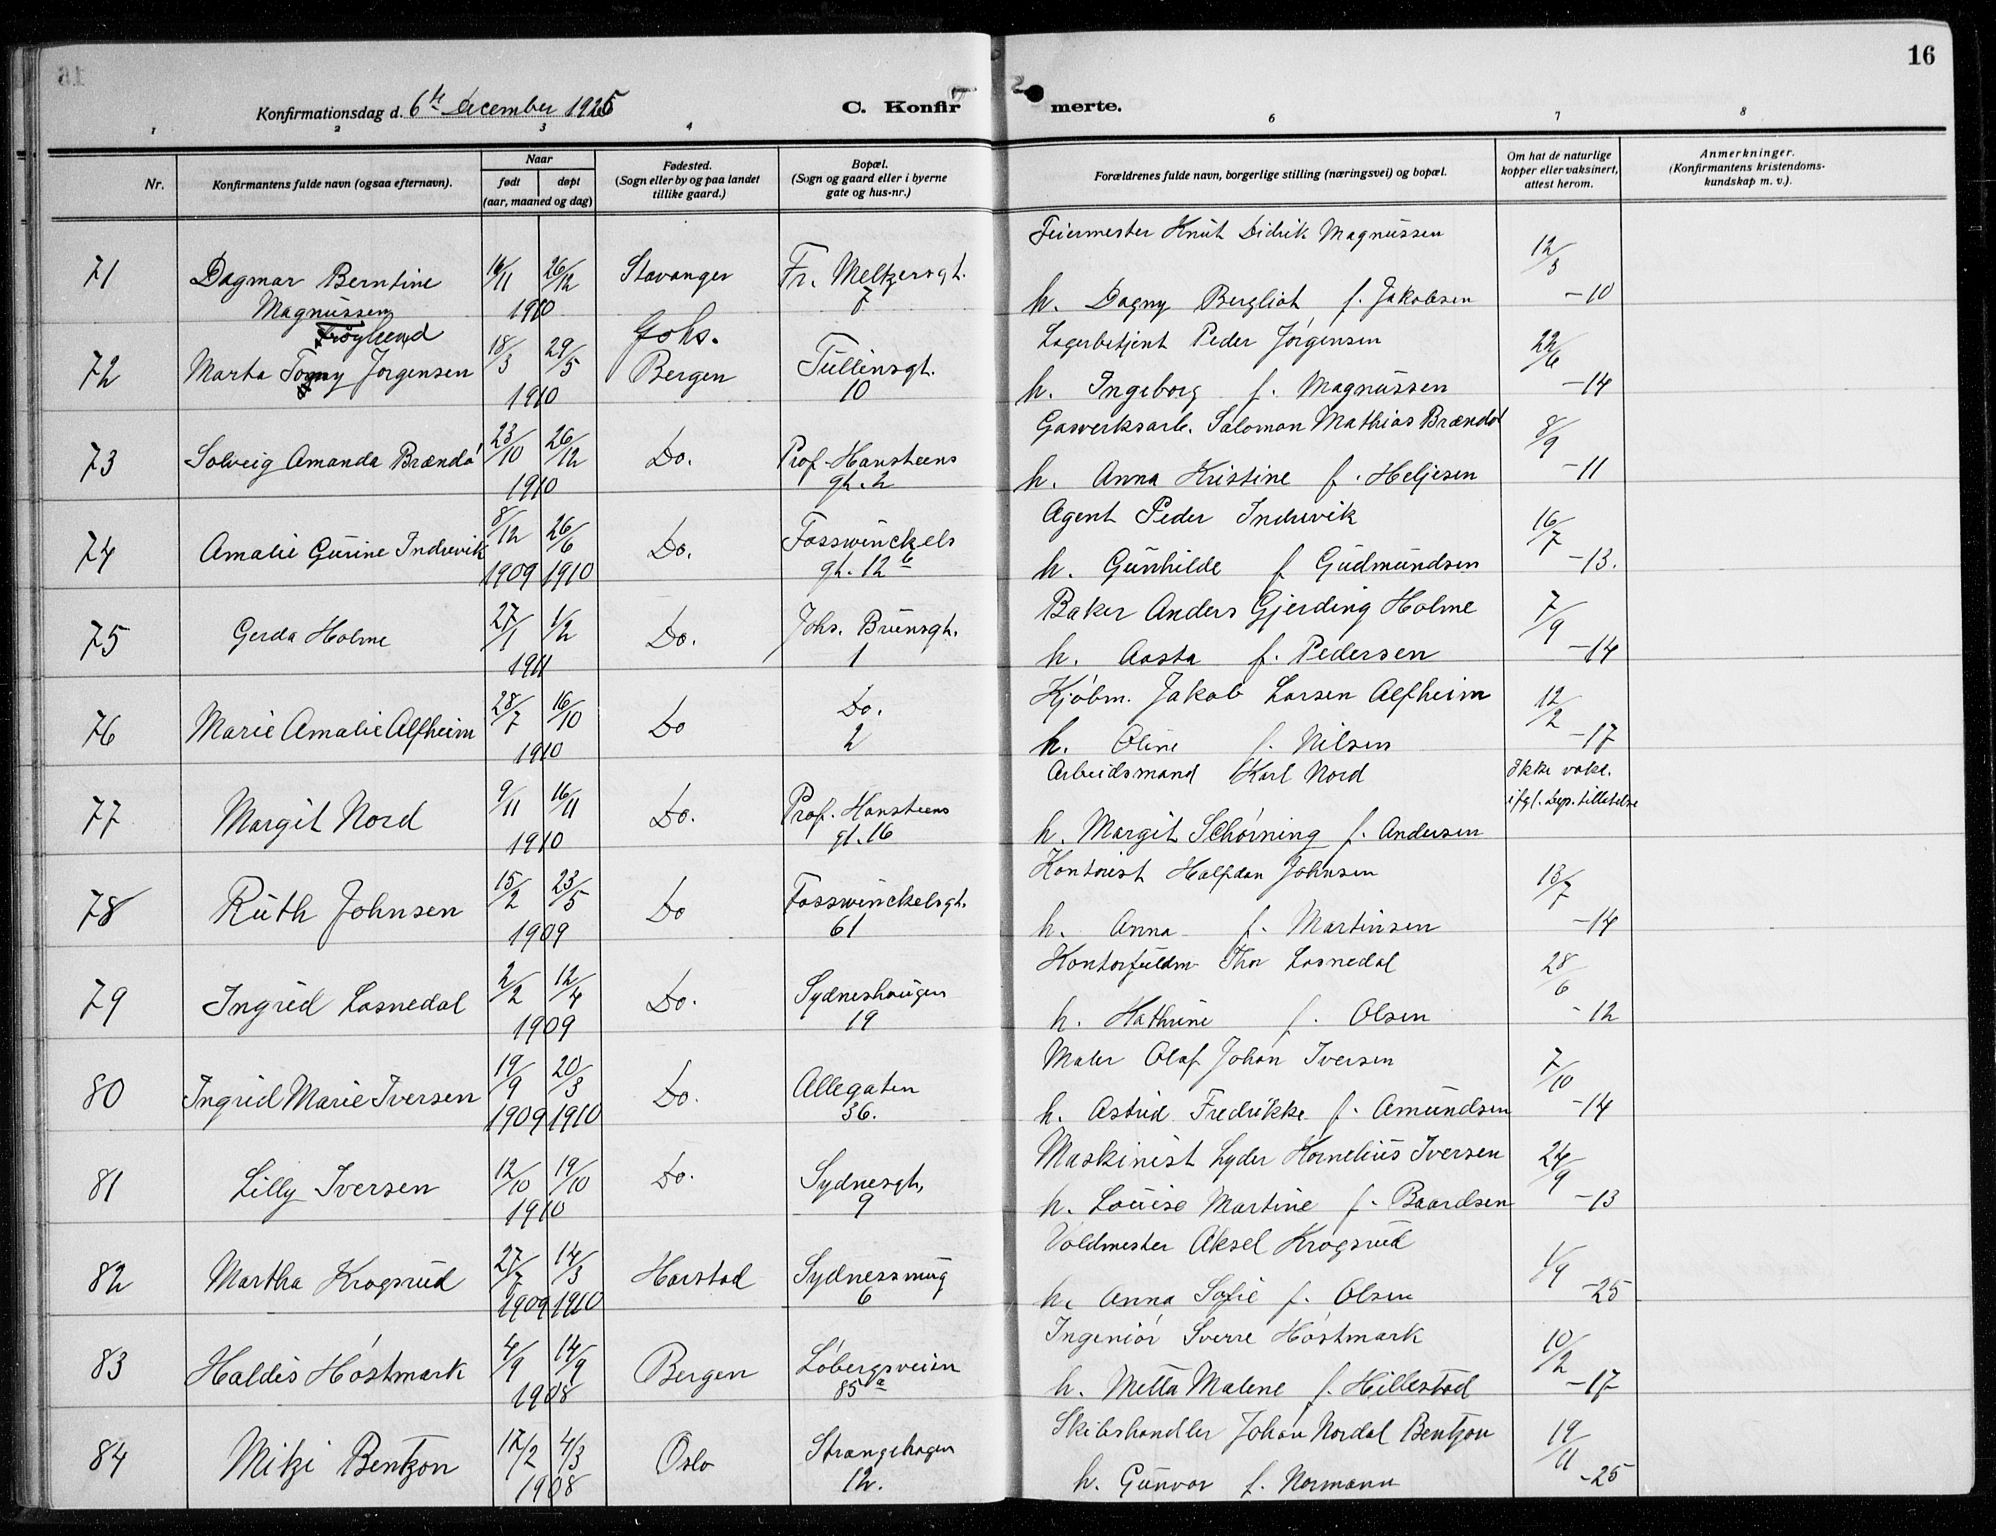 16
Konfirmationsdag d. 6te december 1925
C. Konfirmerte.
1 2 3 4 6 7 8
Nr.
Konfirmantens fulde navn (ogsaa efternavn).
Naar
født
døpt
(aar, maaned og dag)
Fødested.
(Sogn eller by og paa landet
tillike gaard.)
Bopæl.
(Sogn og gaard eller i byerne
gate og hus-nr.)
Forældrenes fulde navn, borgerlige stilling (næringsvei) og bopæl.
Om hat de naturlige
kopper eller vaksinert,
attest herom.
Anmerkninger.
(Konfirmantens kristendoms-
kundskap m. v.).
Feiermester Knut Didrik Magnussen
71 Dagmar Berntine 16/11 26/12 Stavanger Fr. Meltzersgt. 12/3
Magnussen 1910 7 h. Dagny Bergliot f. Jakobsen -10
Johs. Lagerbetjent Peder Jørgensen
72 Marta Jørgensen 18/3 29/5 Bergen Tullinsgt. 22/6
1910 10 h. Ingeborg f. Magnussen -14
Gasverksarb. Salomon Mathias Brændø
73 Solveig Amanda Brændø 23/10 26/12 Do. Prof. Hansteens 8/9
1910 gt. 2 h. Anna Kristine f. Heljesen -11
Agent Peder Indrevik
74 Amalie Gurine Indrevik 8/12 26/6 Do. Fosswinckels 16/7
1909 1910 gt. 12 b h. Gunhilde f. Gudmundsen -13.
Baker Anders Gjerding Holme
75 Gerda Holme 27/1 1/2 Do. Johs. Brunsgt. 7/9
1911 1 h. Aasta f. Pedersen -14
Kjøbm. Jakob Larsen Alfheim
76 Marie Amalie Alfheim 28/7 16/10 Do Do. 12/2
1910 2 h. Oline f. Nilsen -17
Arbeidsmand Karl Nord Ikke vakc.
77 Margit Nord 9/11 16/11 Do. Prof. Hansteens ifgl. dep. tilladelse
1910 gt. 16 h. Margit Schørning f. Andersen
Kontorist Halfdan Johnsen
78 Ruth Johnsen 15/2 23/5 Do Fosswinckelsgt. 13/7
1909 61 h. Anna f. Martinsen -14
Kontorfuldm Thor Lasnedal
79 Ingrid Lasnedal 2/2 12/4 Do. Sydneshaugen 28/6
1909 19 h. Kathrine f. Olsen -12
Maler Olaf Johan Iversen
80 Ingrid Marie Iversen 19/9 20/3 Do. Allegaten 7/10
1909 1910 36. h. Astrid Fredrikke f. Amundsen -14
Maskinist Lyder Kornelius Iversen
81 Lilly Iversen 12/10 19/10 Do. Sydnesgt. 24/9
1910 9 h. Louise Martine f. Baardsen -13
Voldmester Aksel Krogsrud
82 Martha Krogsrud 27/7 14/3 Harstad Sydnessmug 1/9
1909 1910 6 h. Anna Sofie f. Olsen -25
Ingeniør Sverre Høstmark
83 Haldis Høstmark 4/9 14/9 Bergen Løbergsveien 10/2
1908 85 a h. Metta Malene f. Hillestad -17
Skibshandler Johan Nordal Bentzon
84 Mitzi Bentzon 17/2 4/3 Oslo Strangehagen 19/11
1908 12. h. Gunvor f. Normann -25